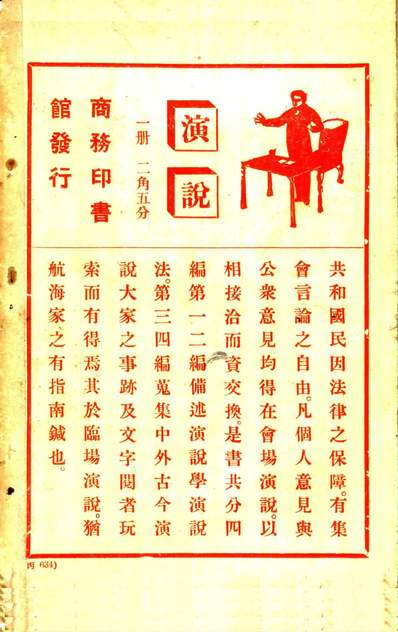 演說
一册 二角五分
商務印書
館發行
共和國民因法律之保障。有集
會言論之自由。凡個人意見與
公衆意見均得在會場演說。以
相接洽而資交換。是書共分四
編第一二編備述演說學演說
法。第三四編蒐集中外古今演
說大家之事跡及文字閱者玩
索而有得焉其於臨場演說。猶
航海家之有指南鍼也。
丙 634)